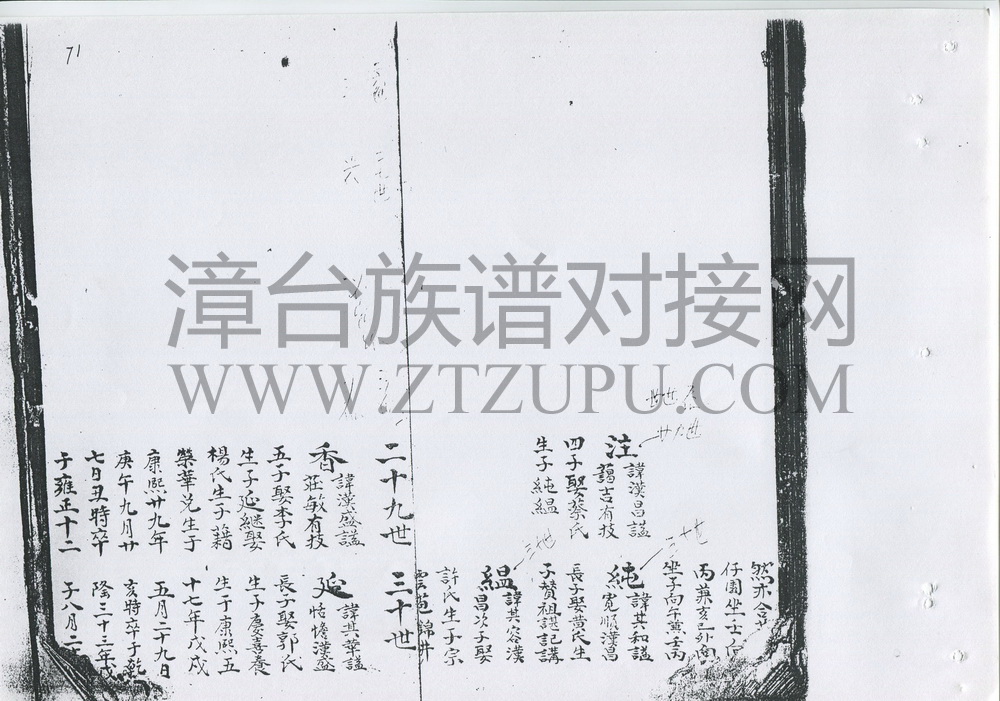 71
漳台族谱对接网
WWW.ZTZUPU.COM
仔園坐壬
丙兼亥巳外向
坐子向午兼壬丙
注
諱漢昌諡
藹吉有技
四子娶蔡氏
生子純緼
純
諱其和諡
寬順漢昌
長子娶黄氏生
子贊祖謀記講
緼
諱其容漢
昌次子娶
許氏生子宗
錦井
二十九世
香
諱漢盛諡
莊敏有技
五子娶李氏
生子延継娶
楊氏生子藉
榮華兑生于
康熙廿九年
庚午九月廿
七日丑時卒
于雍正十二
三十世
延
諱其華諡
恬憺漢盛
長子娶郭氏
生子慶喜養
生于康熙五
十七年戊戌
五月二十九日
亥時卒于乾
隆三十三年戊
子八月二